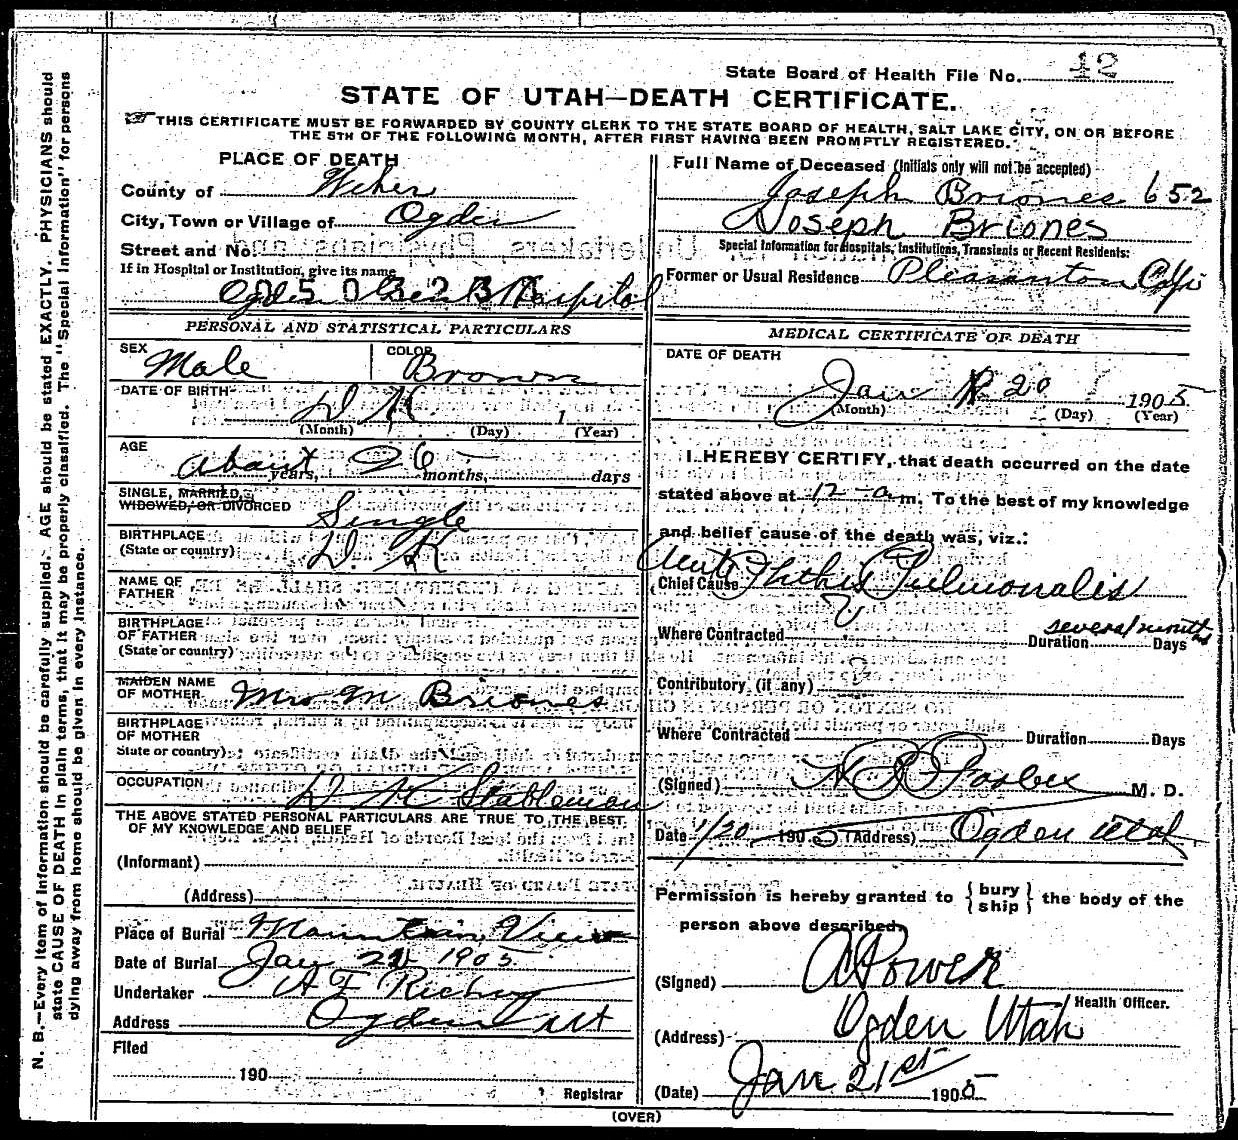 State Board of Health File No. 42
STATE OF UTAH—DEATH CERTIFICATE.
THIS CERTIFICATE MUST BE FORWARDED BY COUNTY CLERK TO THE STATE BOARD OF HEALTH, SALT LAKE CITY, ON OR BEFORE
THE 5TH OF THE FOLLOWING MONTH, AFTER FIRST HAVING BEEN PROMPTLY REGISTERED.
PLACE OF DEATH
County of Weber
City, Town or Village of Ogden
Street and No.
If in Hospital or Institution, give its name
Ogden Gen Hospital
0 5 0 3 2 3
Full Name of Deceased (Initials only will not be accepted)
Joseph Briones 652
Joseph Briones
Special Information for Hospitals, Institutions, Transients or Recent Residents:
Former or Usual Residence Pleasanton Calfi
PERSONAL AND STATISTICAL PARTICULARS
SEX Male
COLOR Brown
DATE OF BIRTH D K 1
(Month) (Day) (Year)
AGE About 26
years, months, days
SINGLE, MARRIED,
WIDOWED, OR DIVORCED Single
BIRTHPLACE
(State or country) D. K
NAME OF
FATHER
BIRTHPLACE
OF FATHER
(State or country)
MAIDEN NAME
OF MOTHER Mrs M Briones
BIRTHPLACE
OF MOTHER
State or country)
OCCUPATION D K Stableman
THE ABOVE STATED PERSONAL PARTICULARS ARE TRUE TO THE BEST
OF MY KNOWLEDGE AND BELIEF
(Informant)
(Address)
Place of Burial Mountain View
Date of Burial Jan 22 1905
Undertaker
Address Ogden Ut
Filed
190
Registrar
MEDICAL CERTIFICATE OF DEATH
DATE OF DEATH
Jan 20 1905
(Month) (Day) (Year)
I HEREBY CERTIFY, that death occurred on the date
stated above at 12 - a m. To the best of my knowledge
and belief cause of the death was, viz.:
Chief Cause Acute Phthisis Pulmonalis
Where Contracted Duration several months Days
Contributory (if any)
Where Contracted Duration Days
(Signed) M. D.
Date 1/20 1905 (Address) Ogden Utah
Permission is hereby granted to { bury ship } the body of the
person above described.
(Signed) A Power
Health Officer.
(Address) Ogden Utah
(Date) Jan 21st 1905
(OVER)
N. B.—Every item of information should be carefully supplied. AGE should be stated EXACTLY. PHYSICIANS should
state CAUSE OF DEATH in plain terms, that it may be properly classified. The "Special Information" for persons
dying away from home should be given in every instance.